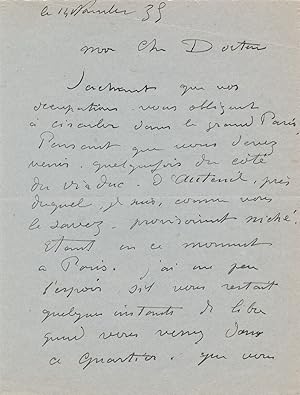 le 14 Novembre 35
mon Cher Docteur
Sachant que vos
occupations vous obligent
à circuler dans le grand Paris,
Pensant que vous devez
venir quelquefois du côté
du viaduc d'Auteuil, près
duquel je suis, comme vous
le savez, provisoirement niché.
Etant en ce moment
a Paris. j'ai un peu
l'espoir s'il vous restait
quelques instants de libre
quand vous venez dans
ce quartier, que vous